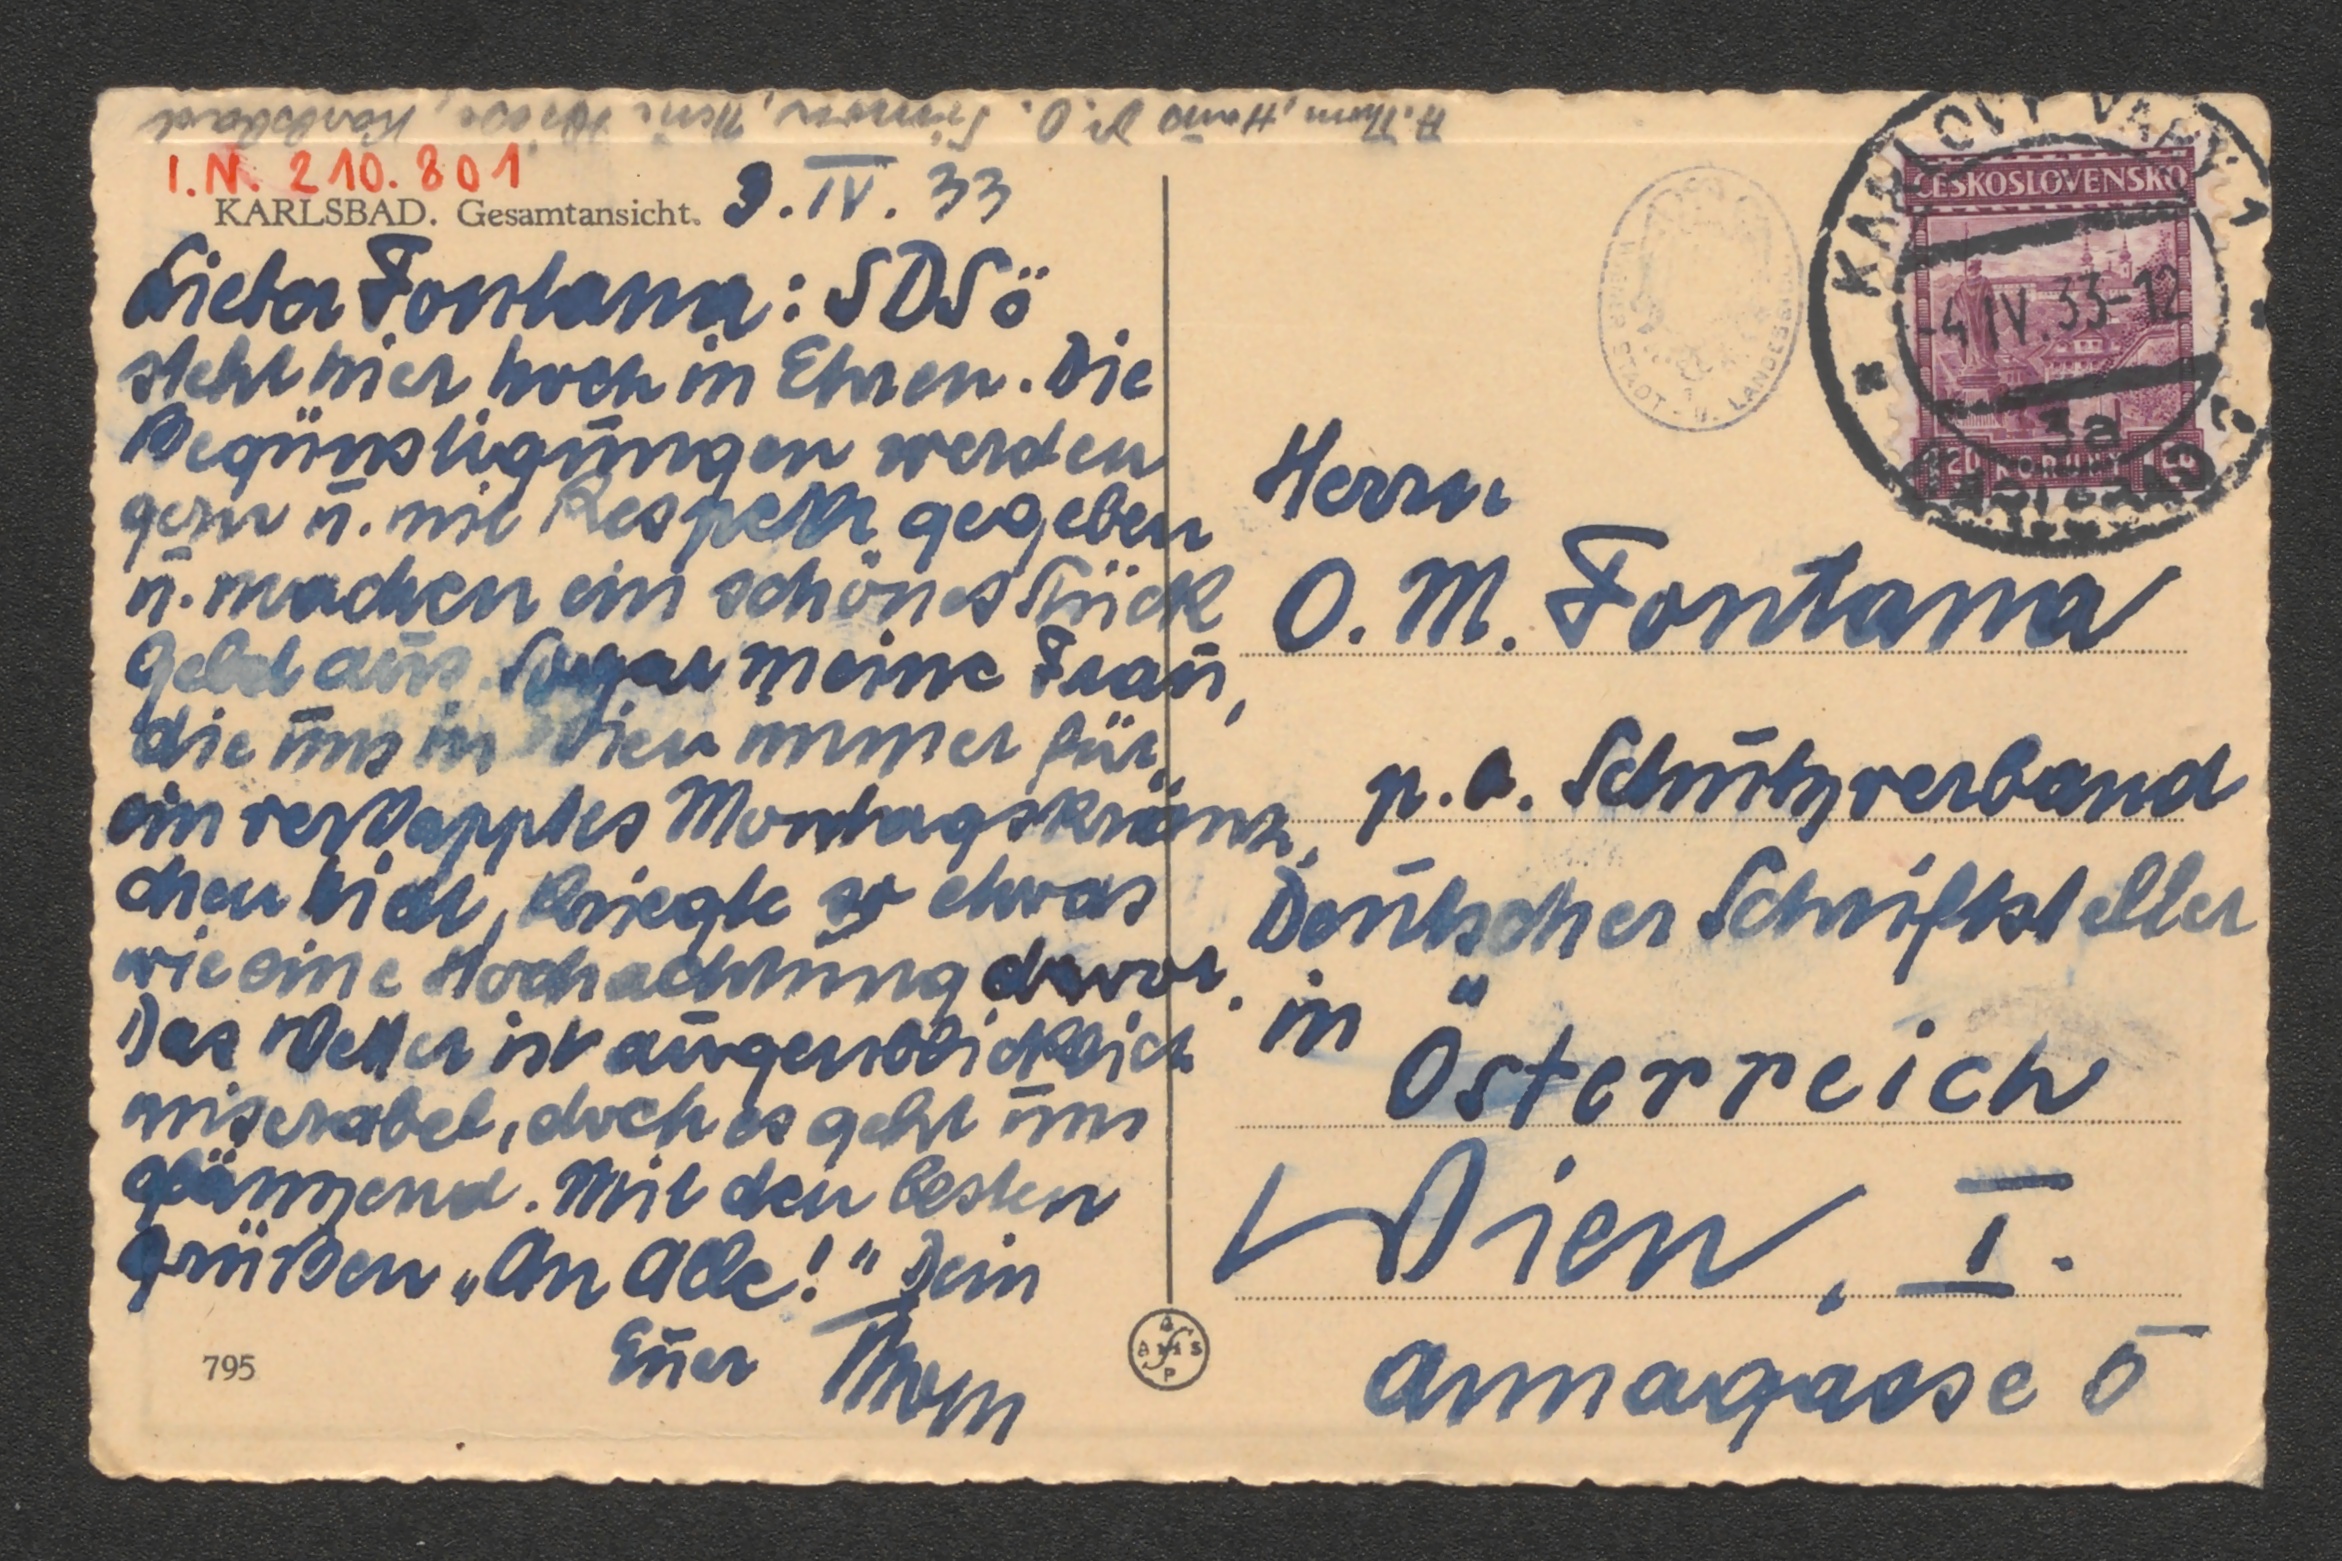 A. Thom, Haus Dr. O. Simon, Neue Wiese, Karlsbad
I.N. 210.801
KARLSBAD. Gesamtansicht.
3. IV. 33
Lieber Fontana: SDSÖ
steht hier hoch in Ehren. Die
Begünstigungen werden
gern u. mit Respekt gegeben
u. machen ein schönes Stück
Geld aus. Sogar meine Frau,
die uns in Wien immer für
ein verkapptes Montagskränz-
chen hielt, kriegte so etwas
wie eine Hochachtung davor.
Das Wetter ist augenblicklich
miserabel, doch es geht uns
glänzend. Mit den besten
Grüßen „An Alle!" Dein
Euer Thom
795
STADT- U. LANDESBIB
KARLOVY VARY 1
-4.IV.33-12
3a
KARLSBAD
ČESKOSLOVENSKO
1.20 KORUNY 1.20
Herrn
O. M. Fontana
p. a. Schutzverband
Deutscher Schriftsteller
in
Österreich
Wien, I.
Annagasse 5